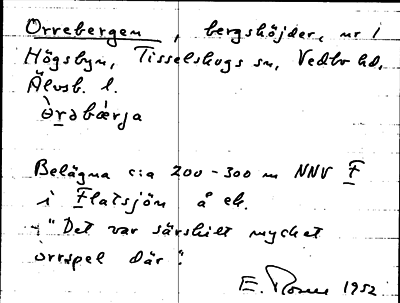 Orrebergen, bergshöjder, nr 1
Högsbyn, Tisselskogs sn, Vedbo hd,
Älvsb. l.
òrəbærja
Belägna c:a 200-300 m NNV F
i Flatsjön å ek.
"Det var särskilt mycket
orrspel där".
E. 1952